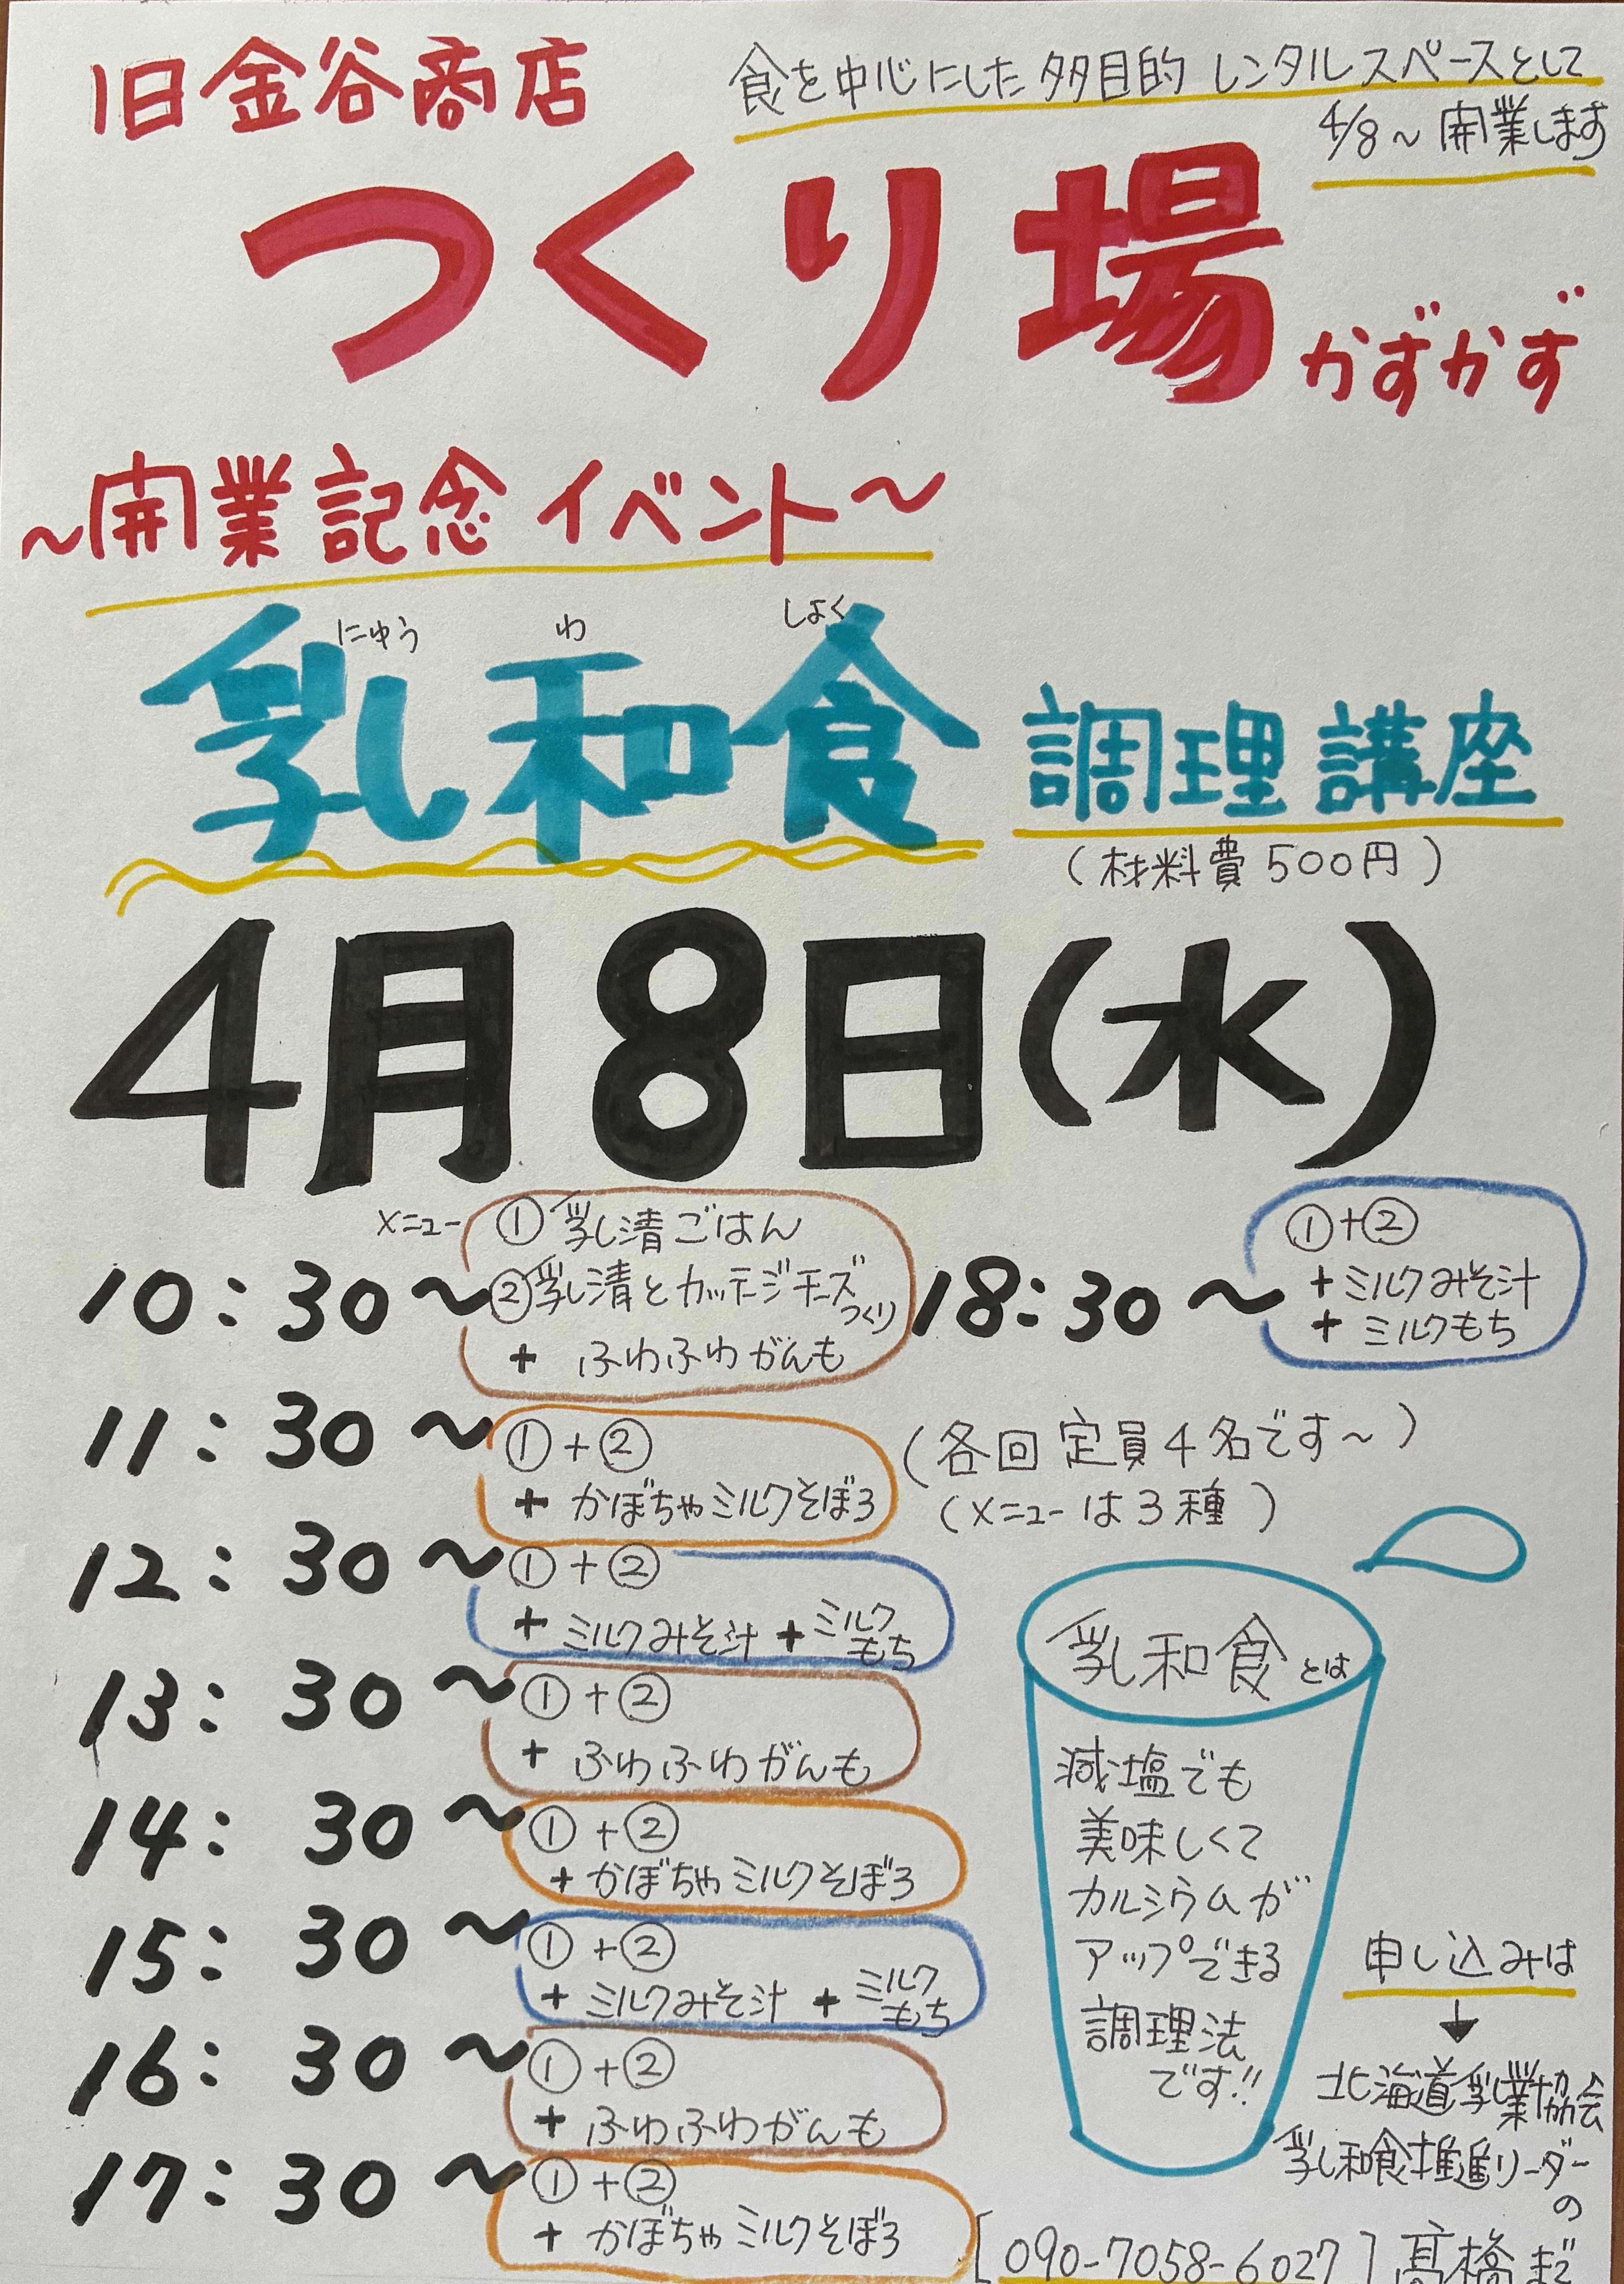 旧金谷商店
食を中心にした多目的レンタルスペースとして
4/8～開業します
つくり場 かずかず
～開業記念イベント～
にゅう わ しょく
乳和食 調理講座
(材料費500円)
4月8日(水)
10:30～ メニュー ①乳清ごはん
②乳清とカッテージチーズつくり
+ ふわふわがんも
18:30～ ①+②
+ ミルクみそ汁
+ ミルクもち
11:30～ ①+②
+ かぼちゃミルクそぼろ
(各回定員4名です～)
(メニューは3種)
12:30～ ①+②
+ ミルクみそ汁 + ミルクもち
13:30～ ①+②
+ ふわふわがんも
14:30～ ①+②
+ かぼちゃミルクそぼろ
15:30～ ①+②
+ ミルクみそ汁 + ミルクもち
16:30～ ①+②
+ ふわふわがんも
17:30～ ①+②
+ かぼちゃミルクそぼろ
乳和食とは
減塩でも
美味しくて
カルシウムが
アップできる
調理法
です!!
申し込みは
↓
北海道乳業協会
乳和食推進リーダー
の
[090-7058-6027] 髙橋まで